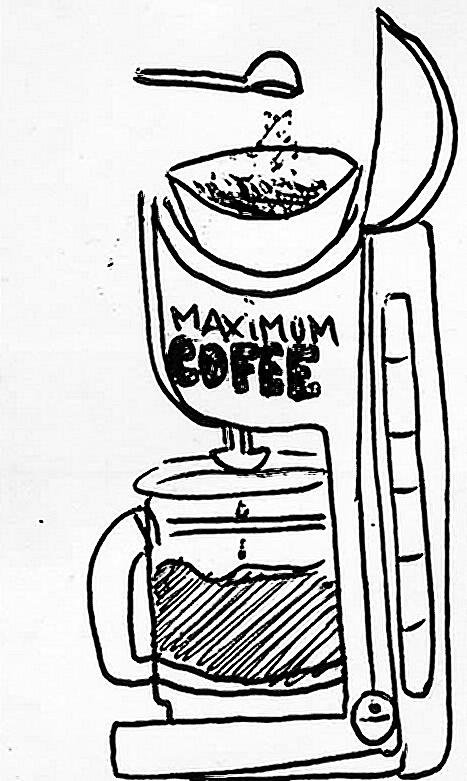 MAXiMUM
COFEE